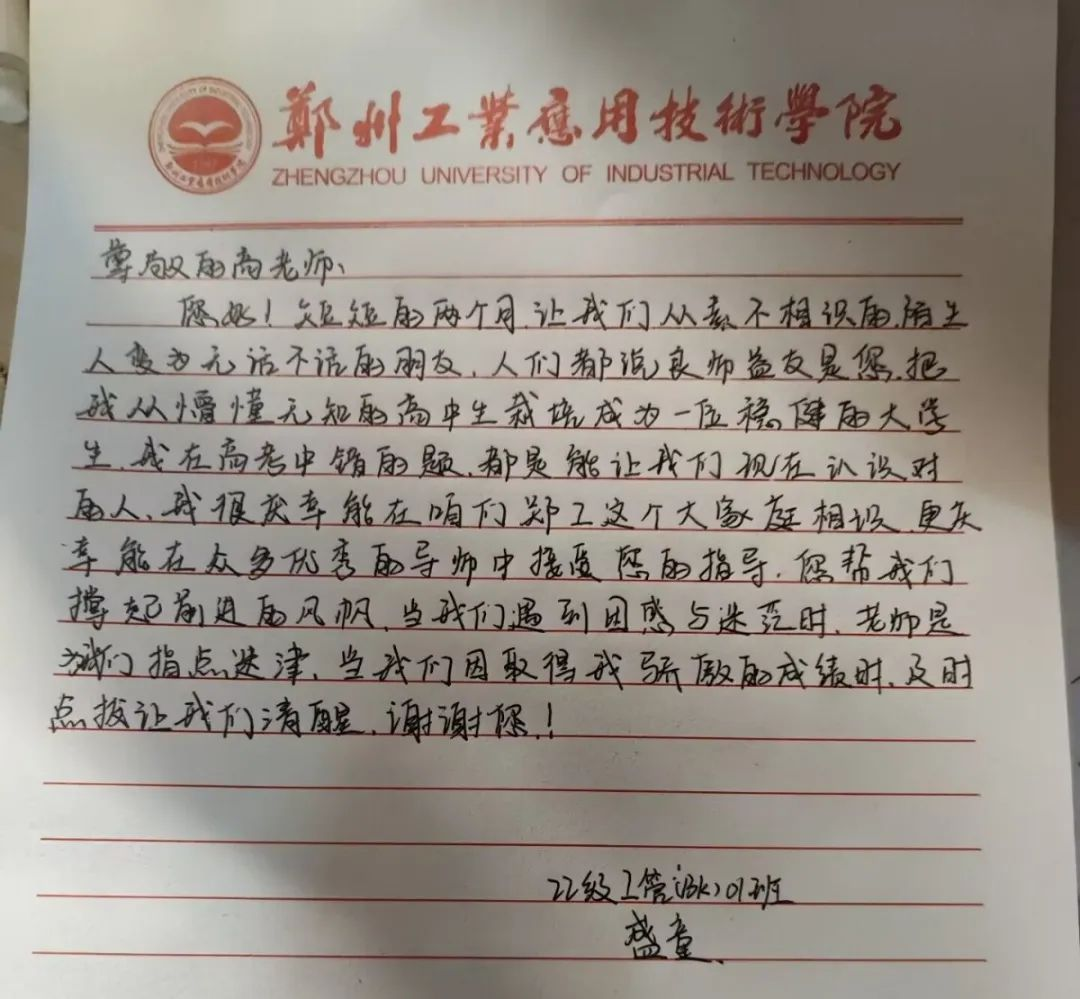 鄭州工業應用技術學院
ZHENGZHOU UNIVERSITY OF INDUSTRIAL TECHNOLOGY
尊敬的高老师、
您好！短短的两个月,让我们从素不相识的陌生
人变为无话不话的朋友，人们都说良师益友是您,把
我从懵懂无知的高中生栽培成为一位稳健的大学
生，我在高考中错的题，都是能让我们现在认识对
的人、我很庆幸能在咱们郑工这个大家庭相识，更庆
幸能在众多优秀的导师中接受您的指导，您帮我们
撑起前进的风帆，当我们遇到困惑与迷茫时，老师是
为我们指点迷津，当我们因取得我骄傲的成绩时、及时
点拔让我们清醒，谢谢您！
22级工管(BK)01班
盛童